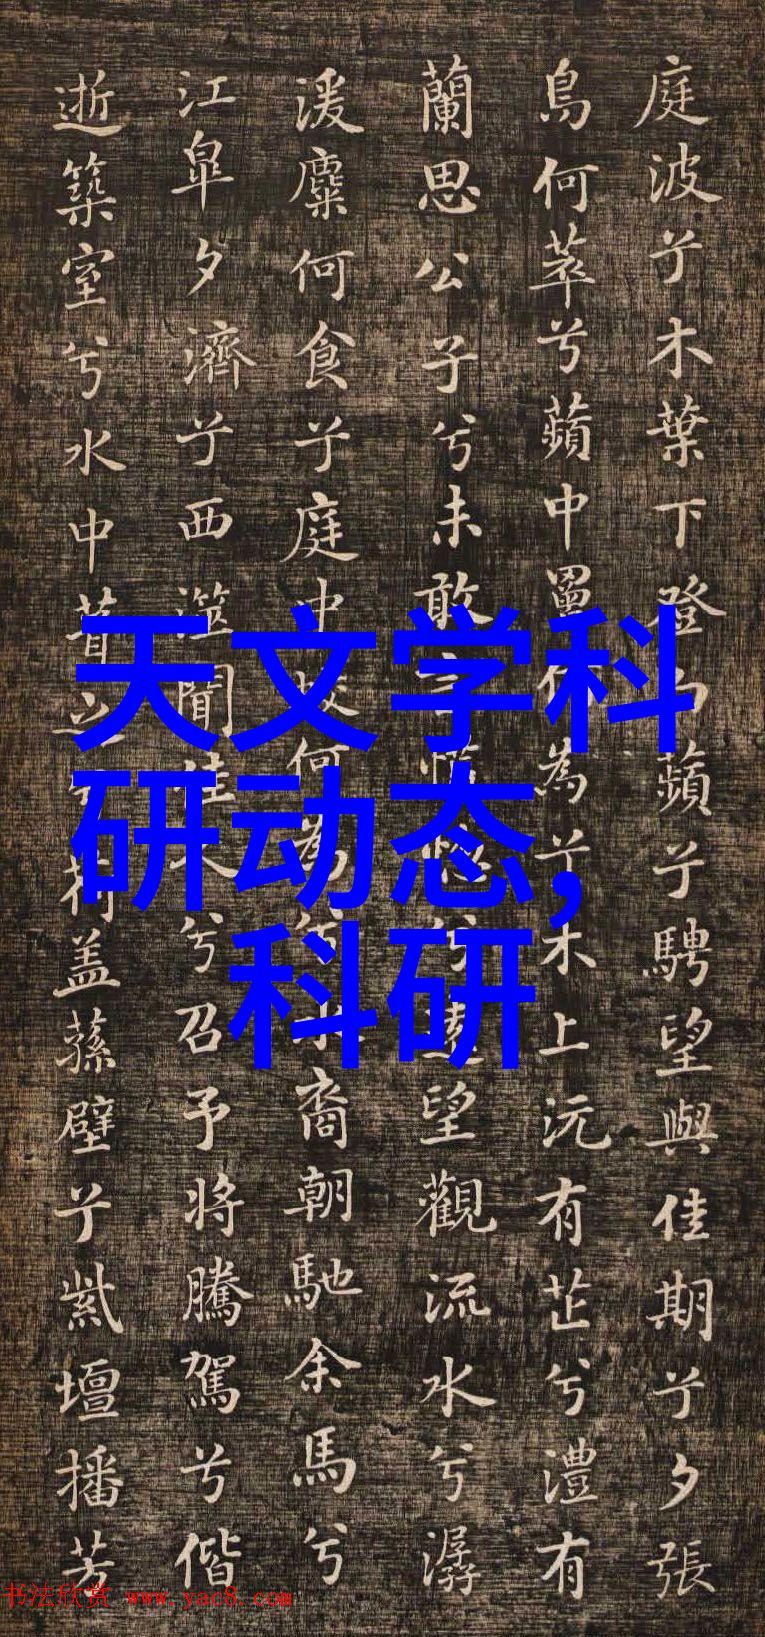 庭波兮木葉下登白蘋兮騁望與佳期兮夕張
鳥何萃兮蘋中罾何為兮木上沅有芷兮澧有
蘭思公子兮未敢言慌惚兮遠望觀流水兮潺
湲麋何食兮庭中蛟何為兮水裔朝馳余馬兮
江皋夕濟兮西澨聞佳人兮召予將騰駕兮偕
逝築室兮水中葺之兮荷盖蓀壁兮紫壇播芳
天文学科
研动态,
科研
书法欣赏 www.yac8.com